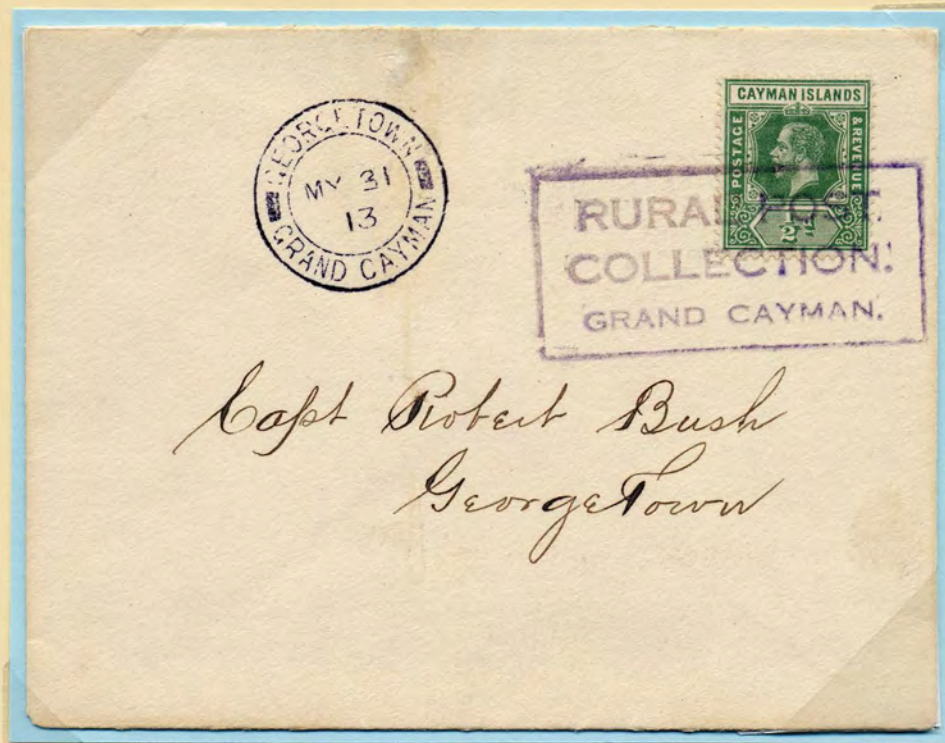 GEORGETOWN
MY 31
13
GRAND CAYMAN
CAYMAN ISLANDS
POSTAGE
& REVENUE
½D
RURAL POST
COLLECTION.
GRAND CAYMAN.
Capt Robert Bush
GeorgeTown